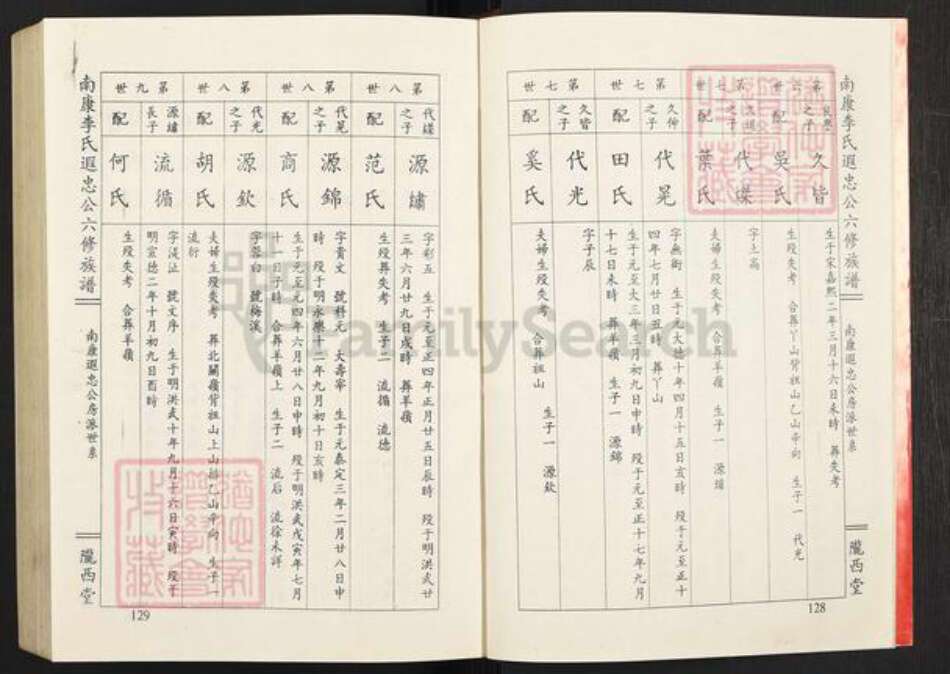 南康李氏遐忠公六修族譜
南康遐忠公房派世系
隴西堂
128
之子
久皆
生于宋嘉熙二年三月十六日未時 葬失考
配
吳氏
生歿失考 合葬丫山背祖山乙山辛向 生子一 代光
之子
代㒒
字上高
配
葉氏
夫婦生歿失考 合葬羊嶺 生子一 源繡
第七世
久仲之子
代晃
字無術 生于元大德十年四月十五日亥時 歿于元至正十
四年七月廿日丑時 葬丫山
配
田氏
生于元至大三年三月初九日申時 歿于元至正十七年九月
十七日未時 葬羊嶺 生子一 源錦
第七世
久皆之子
代光
字子辰
配
奚氏
夫婦生歿失考 合葬祖山 生子一 源欽
第八世
之子
源繡
字彩五 生于元至正四年正月廿五日辰時 歿于明洪武廿
三年六月廿九日戌時 葬羊嶺
配
范氏
生歿葬失考 生子二 流循 流德
第八世
代晃之子
源錦
字貴文 號科元 大壽寧 生于元泰定三年二月廿八日申
時 歿于明永樂十二年九月初十日亥時
配
商氏
生于元至元四年六月廿八日申時 歿于明洪武戊寅年七月
十一日子時 合葬羊嶺上 生子二 流后 流徐未詳
第八世
代光之子
源欽
字蓉白 號梅溪
配
胡氏
夫婦生歿失考 葬北關嶺背祖山上山排乙山辛向 生子一
流衍
第九世
源繡長子
流循
字漢沚 號文序 生于明洪武十年九月十六日寅時 歿于
明宣德二年十月初九日酉時
配
何氏
生歿失考 合葬羊嶺
南康李氏遐忠公六修族譜
南康遐忠公房派世系
隴西堂
129
FamilySearch